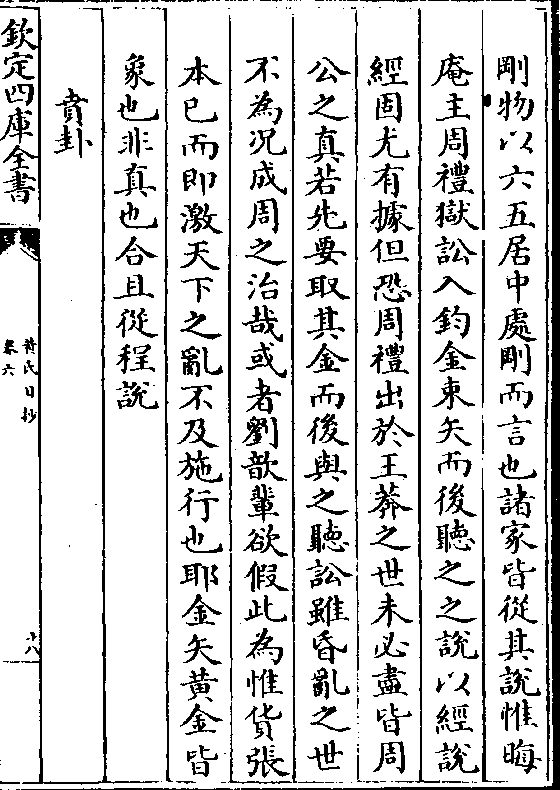 剛物以六五居中處剛而言也諸家皆從其說惟晦
庵主周禮獄訟入鈞金束矢而後聽之之說以經說
經固尤有據但恐周禮出於王莽之世未必盡皆周
公之真若先要取其金而後與之聽訟雖昏亂之世
不為况成周之治哉或者劉歆輩欲假此為惟貨張
本已而即激天下之亂不及施行也耶金矢黃金皆
象也非真也合且從程說
賁卦
欽定四庫全書
黃氏日抄
卷六
十八